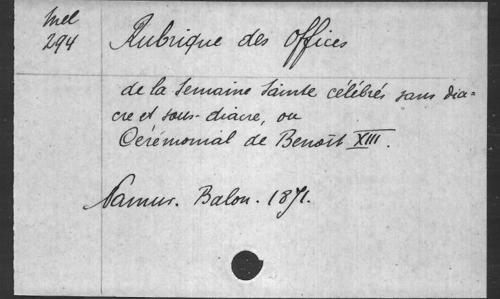 Mel
294
Rubrique des Offices
de la Semaine Sainte célébrés sans dia-
cre et sous-diacre, ou
Cérémonial de Benoît XIII.
Namur. Balon. 1871.